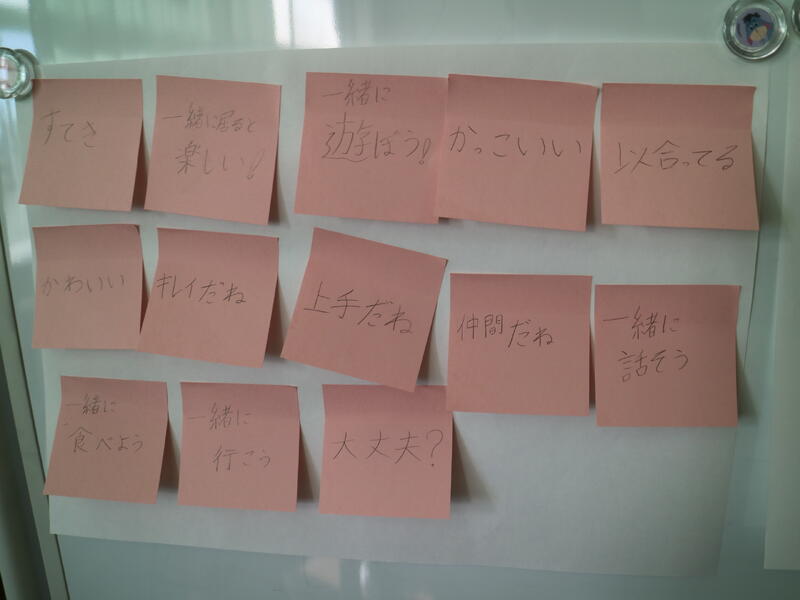 すてき
一緒に居ると
楽しい!
一緒に
遊ぼう!
かっこいい
以合ってる
かわいい
キレイだね
上手だね
仲間だね
一緒に
話そう
一緒に
食べよう
一緒に
行こう
大丈夫?